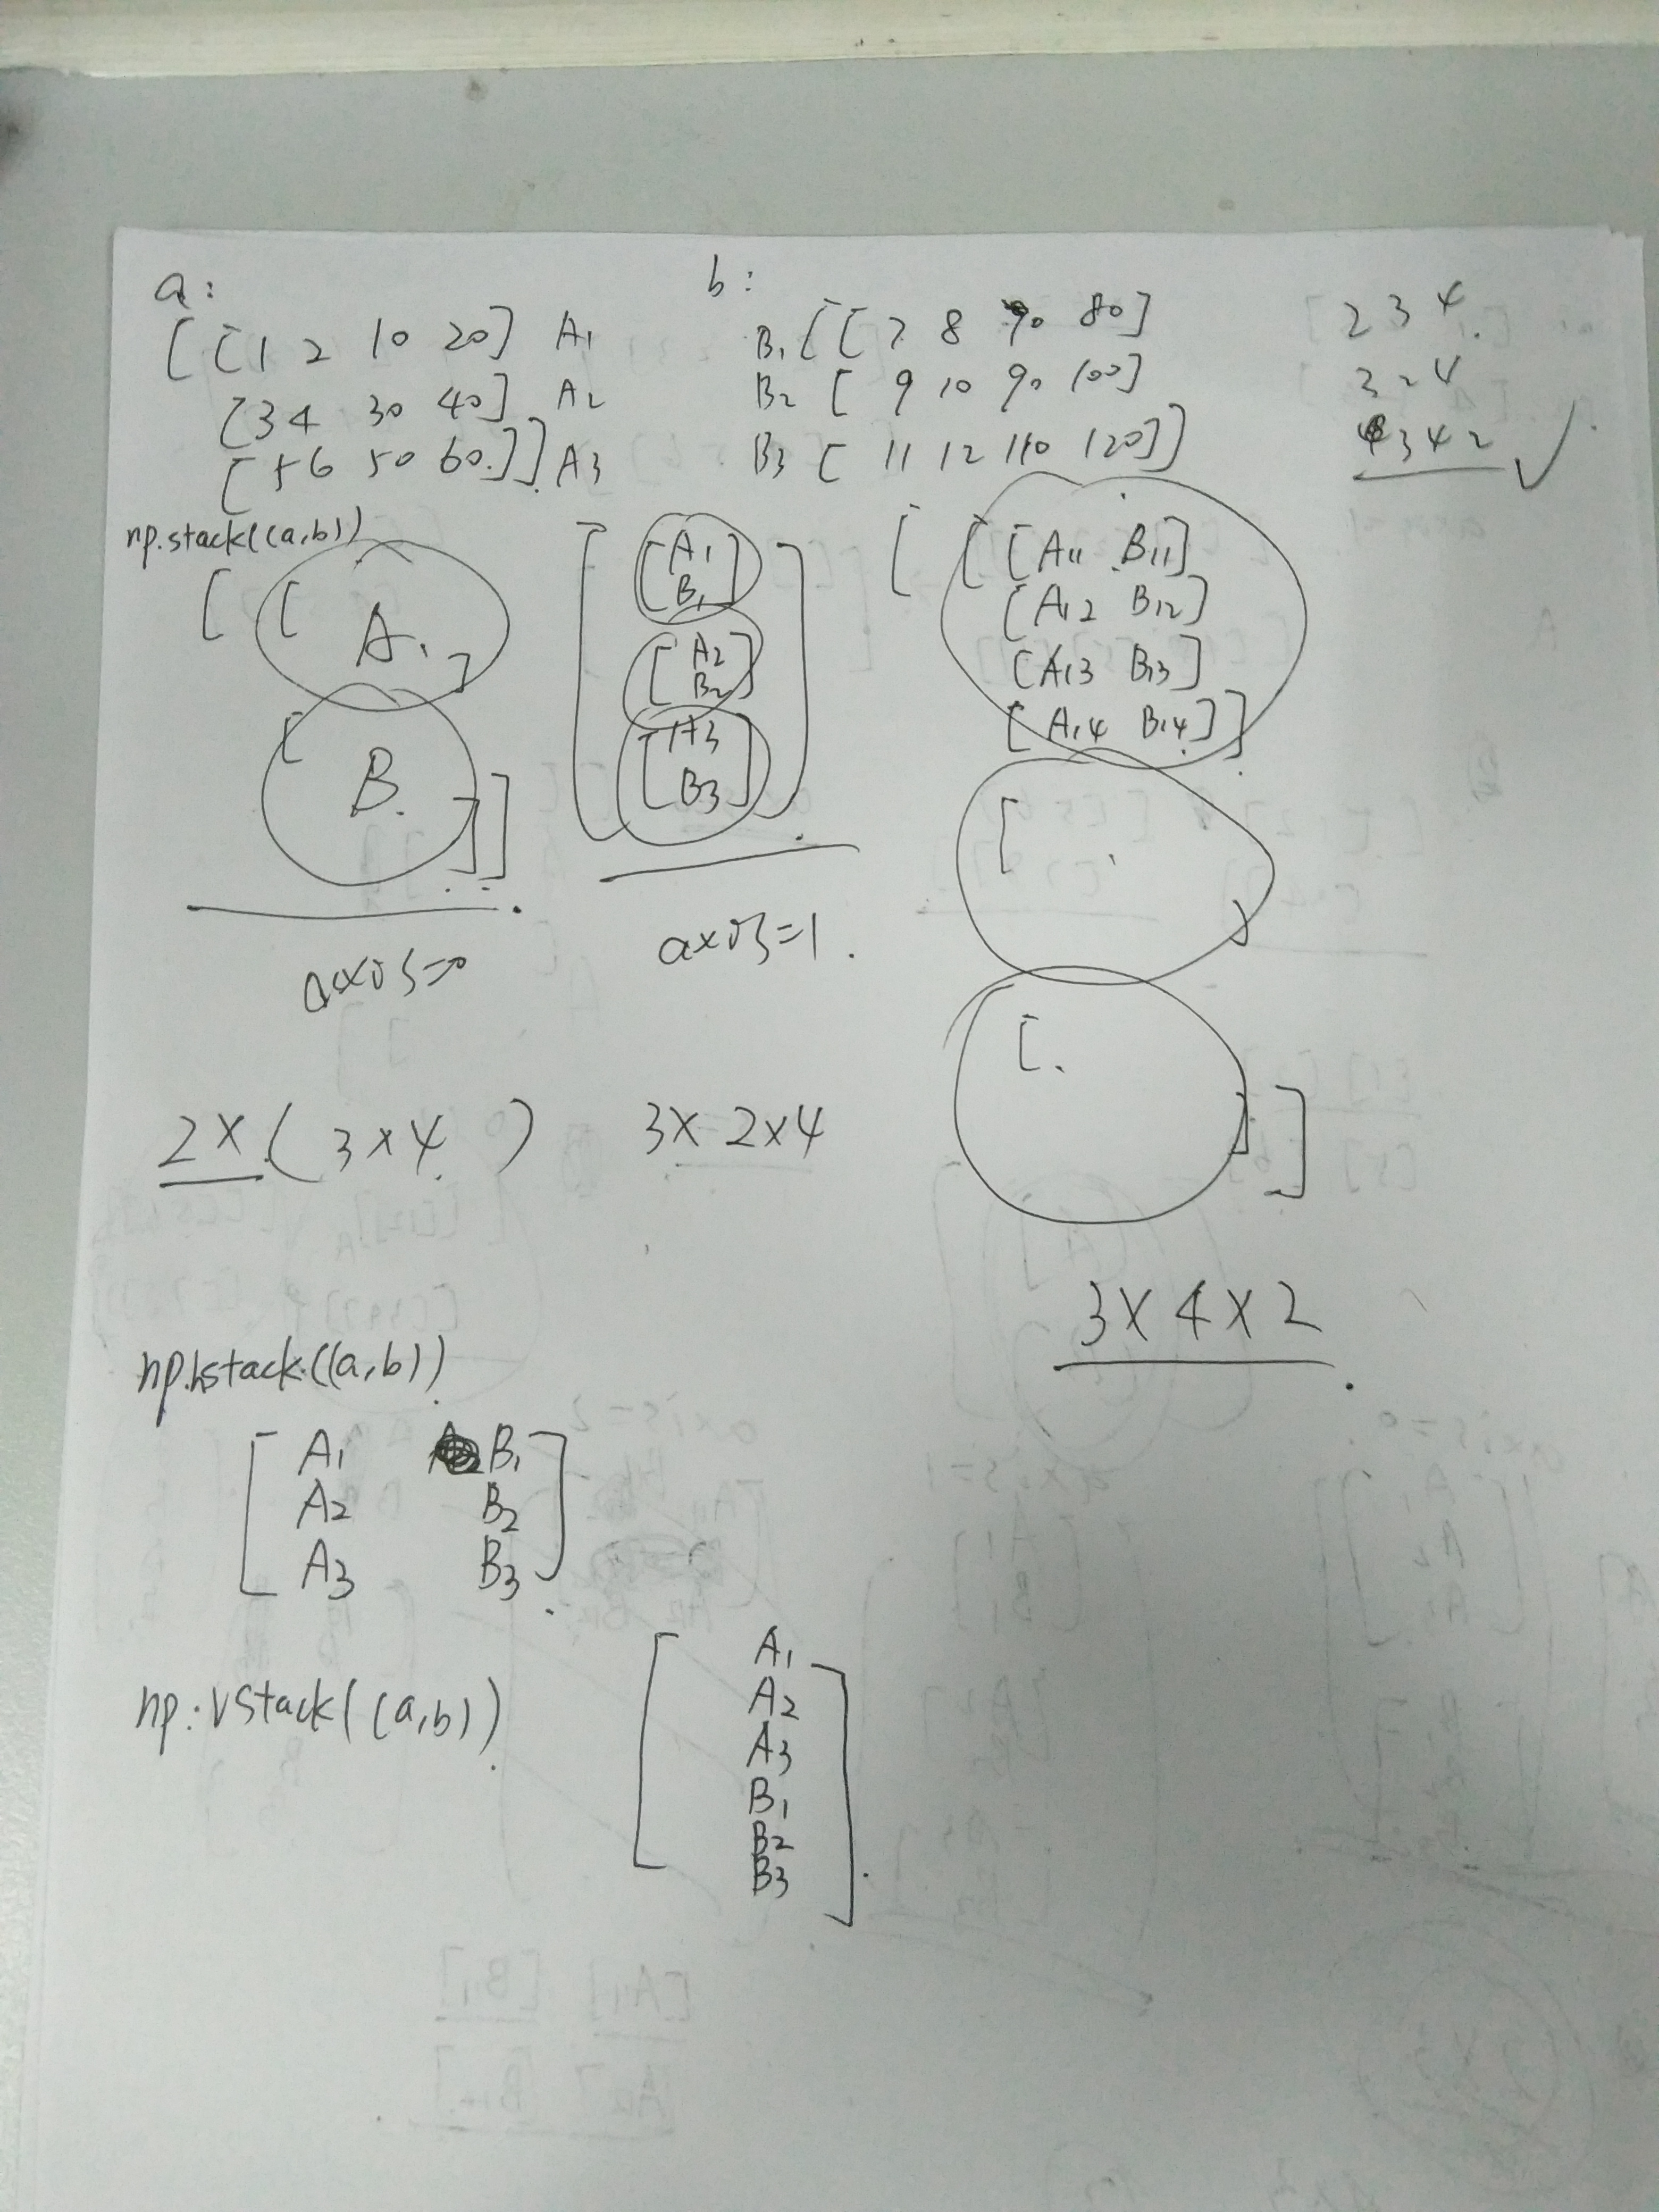 a:
[[1 2 10 20] A1
[3 4 30 40] A2
[5 6 50 60.]] A3
b:
B1 [[7 8 70 80]
B2 [9 10 90 100]
B3 [11 12 110 120]]
2 3 4.
3 2 4
3 4 2 ✓
np.stack((a,b))
[[ A. ]
[ B. ]]
axis=0
2×(3×4)
[ [A1
B1]
[A2
B2]
[A3
B3] ]
axis=1.
3×2×4
[ [ [A11 B11]
[A12 B12]
[A13 B13]
[A14 B14] ]
[ . ]
[. ] ]
3×4×2
np.hstack((a,b))
[ A1 B1 ]
A2 B2
A3 B3
np.vstack((a,b))
[ A1
A2
A3
B1
B2
B3 ]